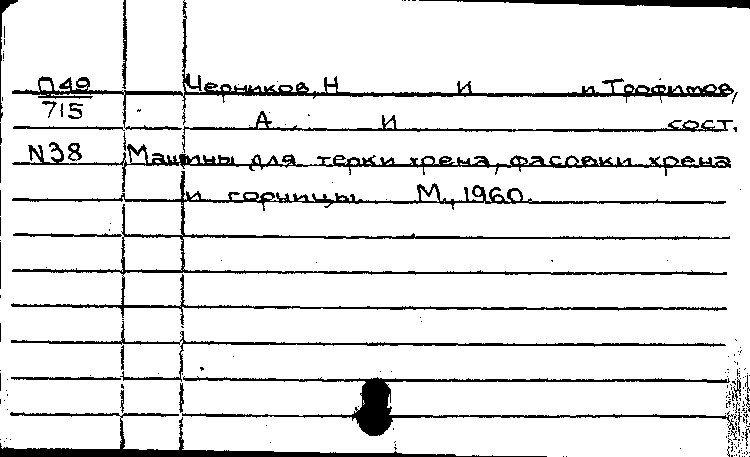 П49 Черников, Н И и Трофимов,
715 А. И сост.
N38 Машины для терки хрена, фасовки хрена
и горчицы. М., 1960.